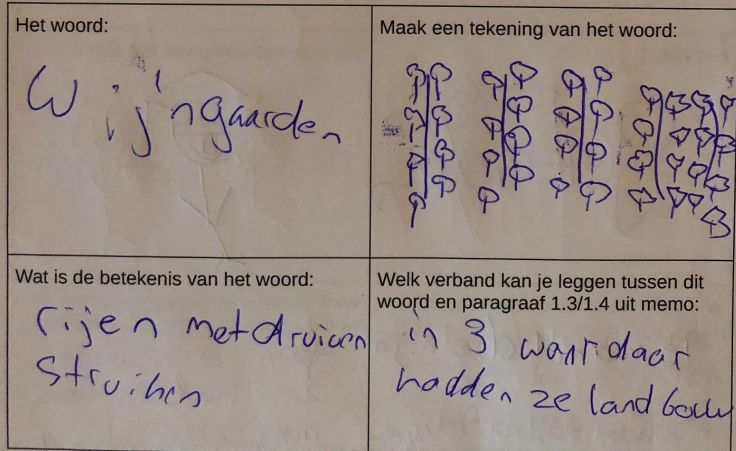 Het woord:
Wijngaarden
Maak een tekening van het woord:
Wat is de betekenis van het woord:
rijen met druiven
struiken
Welk verband kan je leggen tussen dit
woord en paragraaf 1.3/1.4 uit memo:
in 3 want daar
hadden ze landbouw